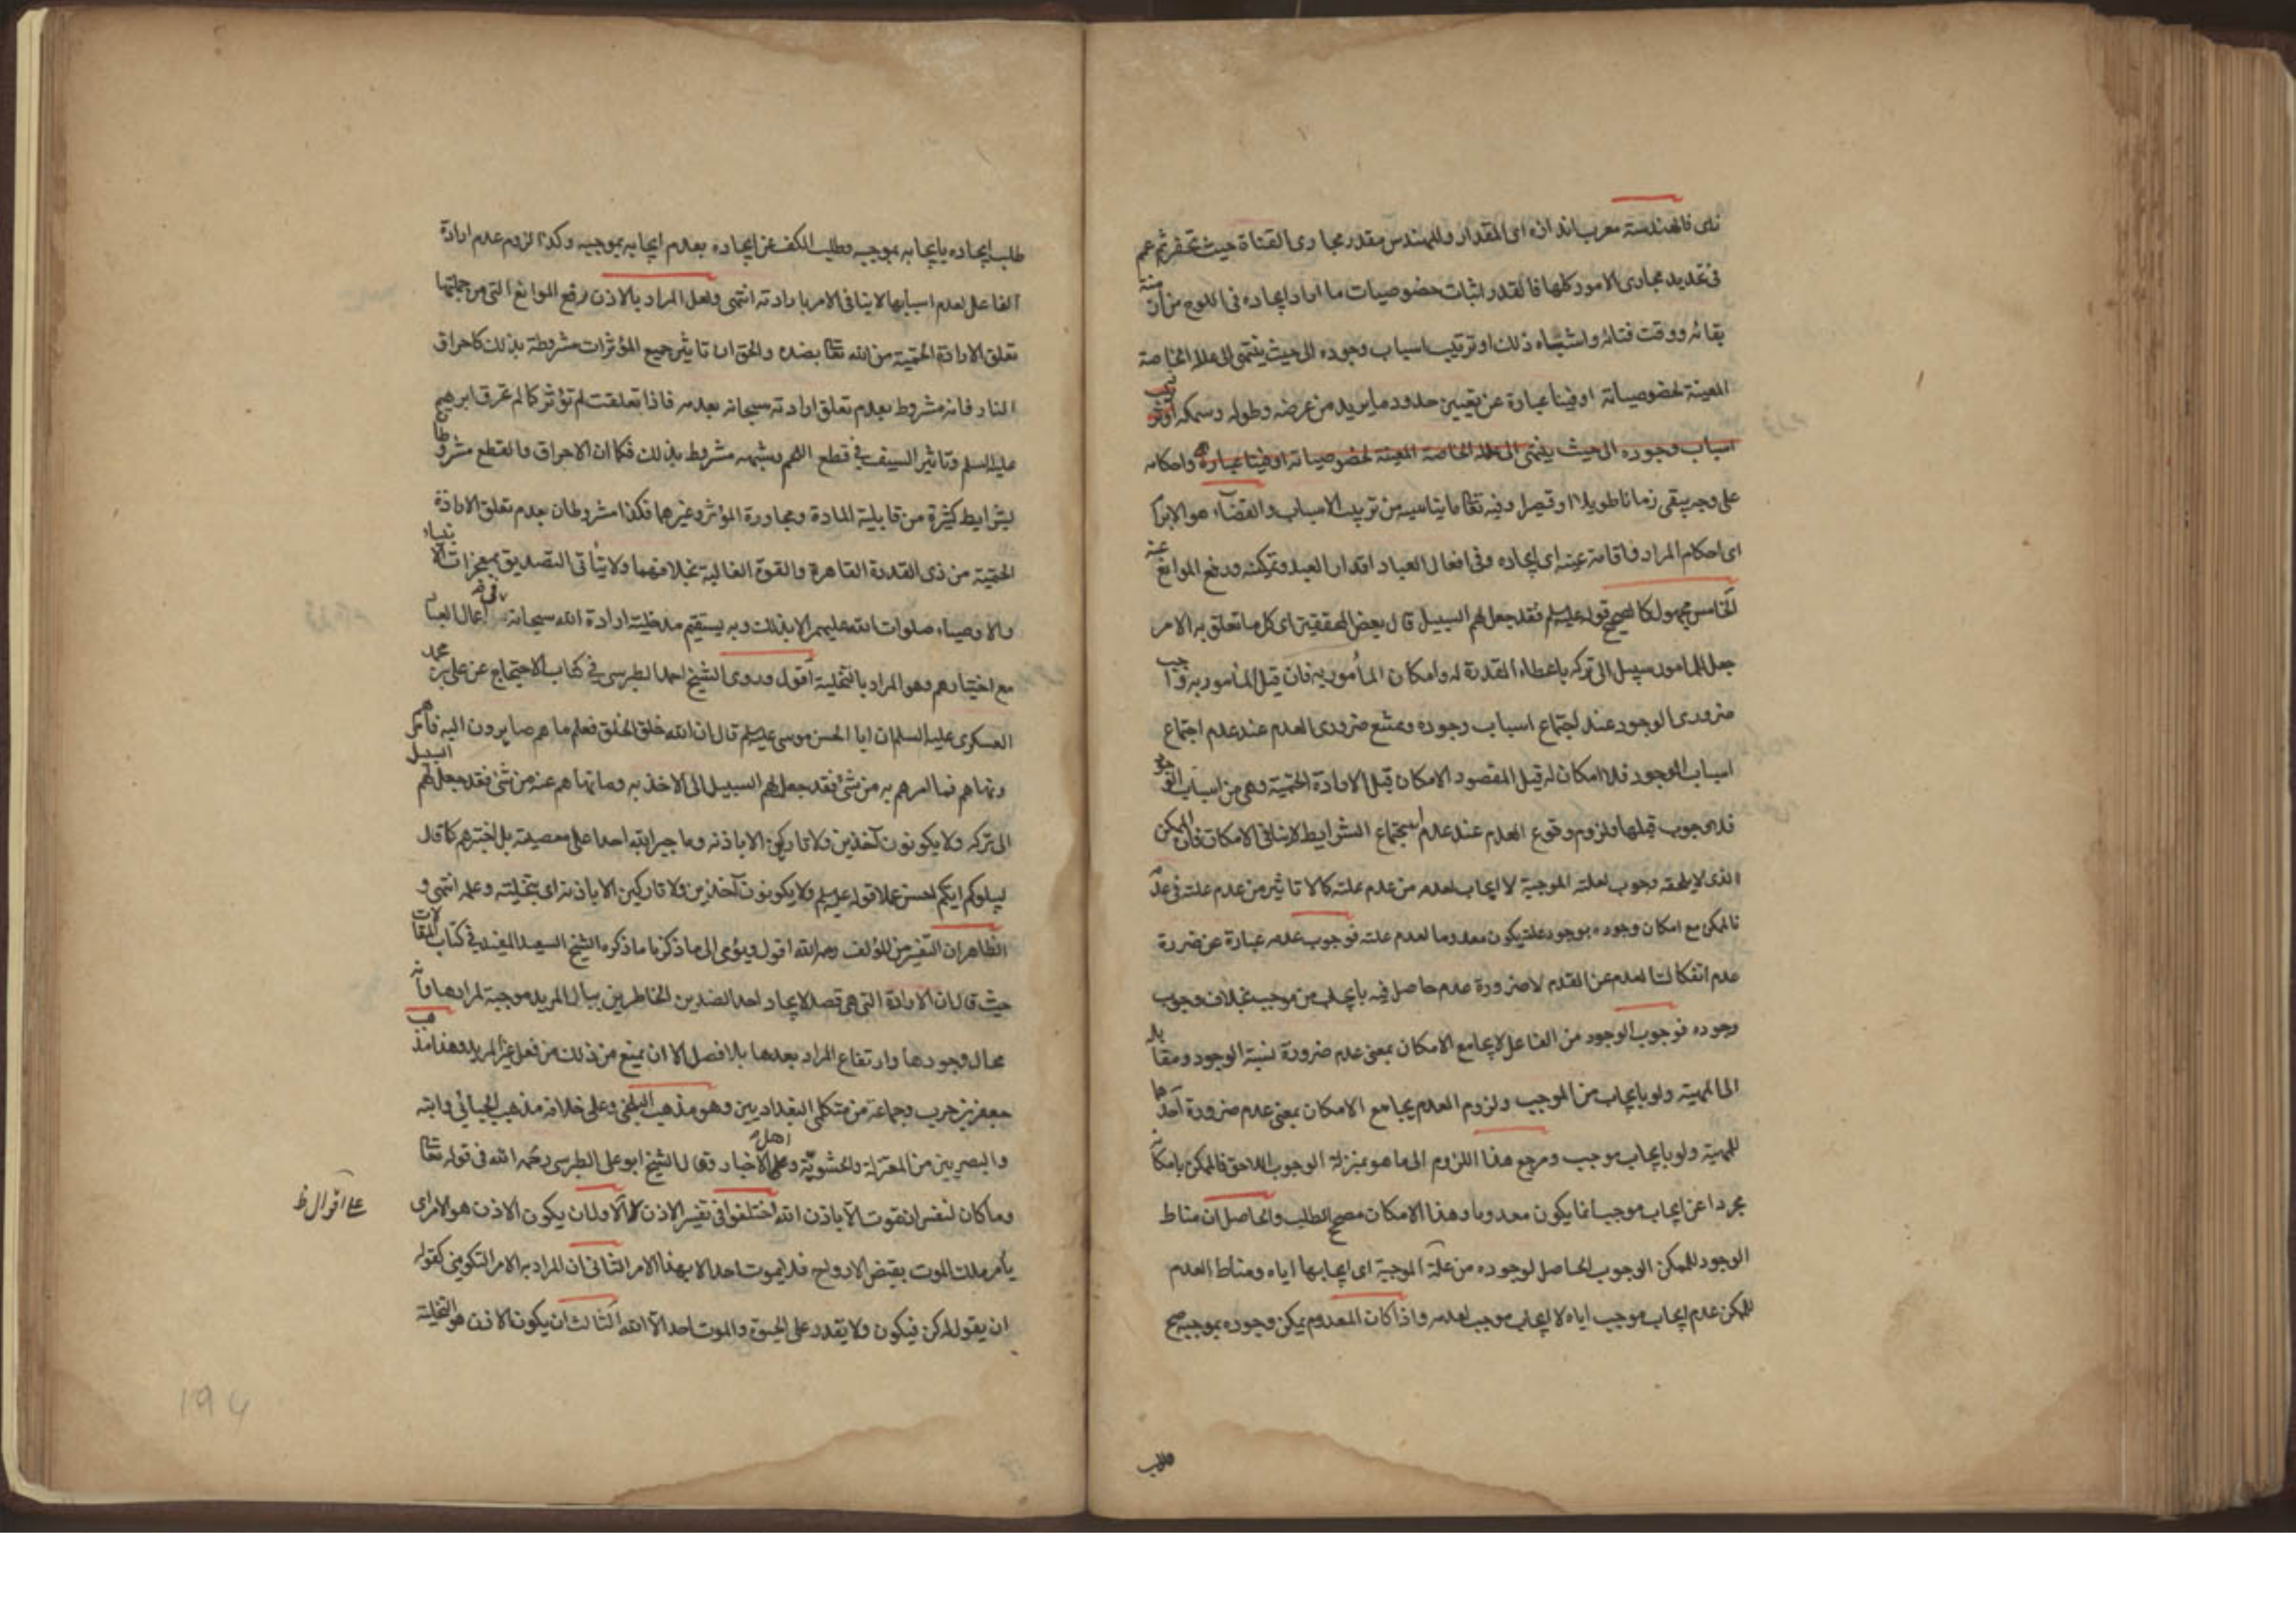 زاى فالهندسة معرب اندازه اى المقدار والمهندس مقدر مجارى القناة حيث تحفر ثم عمم
فى تحديد مجارى الامور كلها فالقدر اثبات خصوصيات ما اراد ايجاده فى اللوح من ان منة
بقائه ووقت فنائه واشباه ذلك او ترتيب اسباب وجوده الى حيث ينتهى الى علله الخاصة
المعينة لخصوصياته او فينا عبارة عن تعيين حدود ما يريد من عرضه وطوله وسمكه
اسباب وجوده الى حيث ينتهى الى علله الخاصة المعينة لخصوصياته او فينا عبارة واحكامه
على وجه يبقى زمانا طويلا او قصيرا وفيه تعا ما يناسبه من ترتيب الاسباب والقضاء هو الابرا
اى احكام المراد فاقامة عينه اى ايجاده وفى افعال العباد اقدار العبد وتمكينه ورفع الموانع عنه
الخامس مجهول كالصحيح قوله عليه السلم فقد جعل لهم السبيل قال بعض المحققين اى كل ما تعلق به الامر
جعل للمأمور سبيل الى تركه باعطاء القدرة له وامكان المأمور به فان قيل المأمور به واجب
ضرورى الوجود عند اجتماع اسباب وجوده وممتنع ضرورى العدم عند عدم اجتماع
اسباب الوجود فلا امكان له قيل المقصود الامكان قبل الارادة الحتمية وهى من اسباب الوجو
فلا وجوب قبلها ولزوم وقوع العدم عند عدم استجماع الشرايط لا ينافى الامكان فان الممكن
الذى لا يلحقه وجوب لعلته الموجبة لا ايجاب لعدمه من عدم علته كالا تاثير من عدم علته فى عدمه
فالممكن مع امكان وجوده بوجود علته يكون معدوما لعدم علته فوجوب عدمه عبارة عن ضرورة
عدم انفكاك العدم عن العدم لا ضرورة عدم حاصل فيه بايجاب من موجب بخلاف وجوب
وجوده فوجوب الوجود من الفاعل لا يجامع الامكان بمعنى عدم ضرورة نسبة الوجود ومقابله
الى المهية ولو بايجاب من الموجب ولزوم العدم يجامع الامكان بمعنى عدم ضرورة احدهما
للمهية ولو بايجاب موجب ومرجع هذا اللزوم الى ما هو بمنزلة الوجوب اللاحق فالممكن بامكانه
مجردا عن ايجاب موجب انما يكون معدوما وهذا الامكان مصحح الطلب والحاصل ان مناط
الوجود للممكن الوجوب الحاصل لوجوده من علة الموجبة اى ايجابها اياه ومناط العدم
للممكن عدم ايجاب موجب اياه لا ايجاب موجب لعدمه واذا كان المعدوم يمكن وجوده بموجبه صح
طلب
طلب ايجاده بايجابه بموجبه وطلب الكف عن ايجاده بعدم ايجابه بموجبه وكذا لزوم عدم ارادة
الفاعل لعدم اسبابها لا ينافى الامر بارادته انتهى ولعل المراد بالاذن رفع الموانع التى من جملتها
تعلق الارادة الحتمية من الله تعا بضده والحق ان تاثير جميع المؤثرات مشروطة بذلك كاحراق
النار فانه مشروط بعدم تعلق ارادته سبحانه بعدمه فاذا تعلقت لم تؤثر كما لم تحرق ابرهيم
عليه السلم وتاثير السيف فى قطع اللحم وشبهه مشروط بذلك فكما ان الاحراق والقطع مشروطان
بشرايط كثيرة من قابلية المادة ومجاورة المؤثر وغيرهما فكذا مشروطان بعدم تعلق الارادة
الحتمية من ذى القدرة القاهرة والقوة الغالبة بخلافهما ولا يتأتى التصديق بمعجزات الانبياء
والاوصياء صلوات الله عليهم الا بذلك وبه يستقيم مدخلية ارادة الله سبحانه فى اعمال العباد
مع اختيارهم وهو المراد بالتخلية أقول وروى الشيخ احمد الطبرسى فى كتاب الاحتجاج عن على بن محمد
العسكرى عليه السلم ان ابا الحسن موسى عليه السلم قال ان الله خلق الخلق فعلم ما هم صايرون اليه فأمرهم
ونهاهم فما امرهم به من شئ فقد جعل لهم السبيل الى الاخذ به وما نهاهم عنه من شئ فقد جعل لهم السبيل
الى تركه ولا يكونون آخذين ولا تاركين الا باذنه وما جبر الله احدا على معصيته بل اختبرهم كما قال
ليبلوكم ايكم احسن عملا قوله عليه السلم ولا يكونون آخذين ولا تاركين الا باذنه اى بتخليته وعلمه انتهى و
الظاهر ان التفسير من المؤلف رحمه الله اقول ويؤمى الى ما ذكرنا ما ذكره الشيخ السعيد المفيد فى كتاب المقالات
حيث قال ان الارادة التى هى قصد لايجاد احد الضدين الخاطرين ببال المريد موجبة لمرادها وانه
محال وجودها وارتفاع المراد بعدها بلا فصل الا ان يمنع من ذلك من فعل غير المريد وهذا مذهب
جعفر بن حرب وجماعة من متكلمى البغداديين وهو مذهب البلخى وعلى خلافه مذهب الجبائى وابنه
والبصريين من المعتزلة والحشوية وعلى اهل الاخبار وقال الشيخ ابو على الطبرسى رحمه الله فى قوله تعا
وما كان لنفس ان تموت الا باذن الله اختلفوا فى تفسير الاذن الاول ان يكون الاذن هو الامر اى
على اقوال ظ
يأمر ملك الموت بقبض الارواح فلا يموت احد الا بهذا الامر الثانى ان المراد به الامر التكوينى كقوله
ان يقول له كن فيكون ولا يقدر على الحيوة والموت احد الا الله الثالث ان يكون الاذن هو التخلية
194